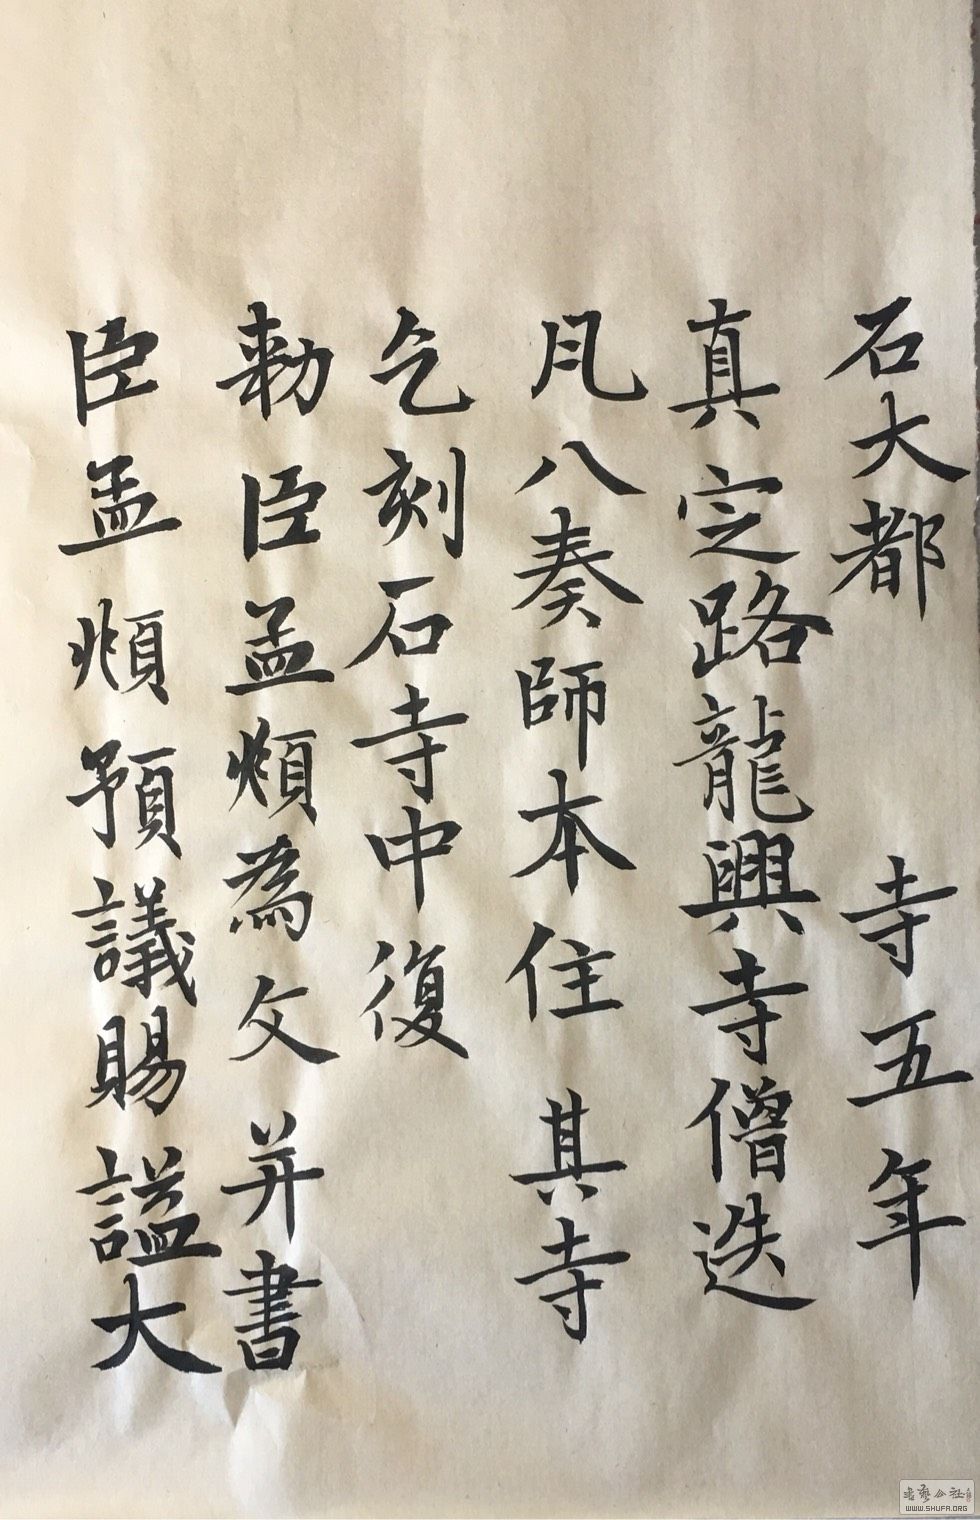 石大都 寺五年
真定路龍興寺僧迭
凡八奏師本住其寺
乞刻石寺中復
勑臣孟頫為文并書
臣孟頫預議賜謚大
WWW.SHUFA.ORG